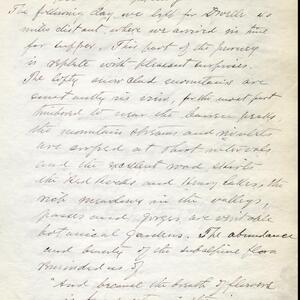 The following day we left for Dwelle 40
miles distant, where we arrived in time
for supper. This part of the journey
is replete with pleasant surprises.
The lofty snow clad mountains are
constantly in view, for the most part
timbered to near the barren peaks
the mountain streams and rivulets
are crossed at short intervals
and the excellent road skirts
the Red Rocks and lakes, the
rich meadows in the valleys,
passes and gorges are veritable
botanical gardens. The abundance
and beauty of the subalpine flora
reminded us of
"And because the breath of flowers